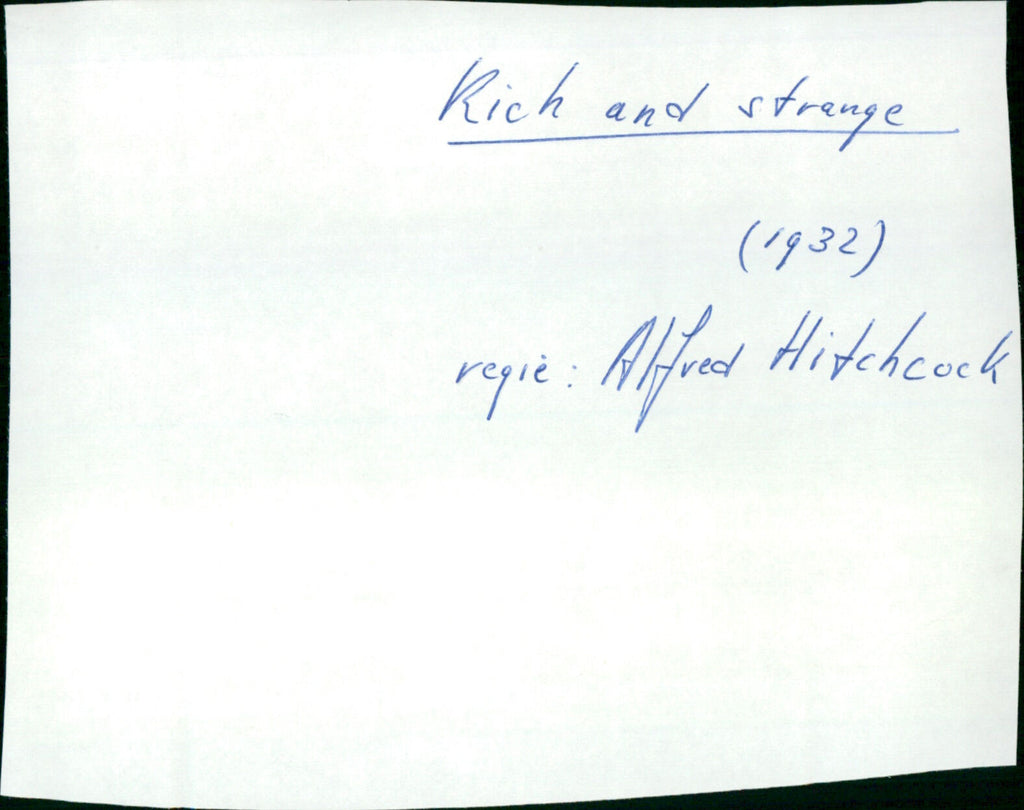 Rich and strange
(1932)
regie: Alfred Hitchcock